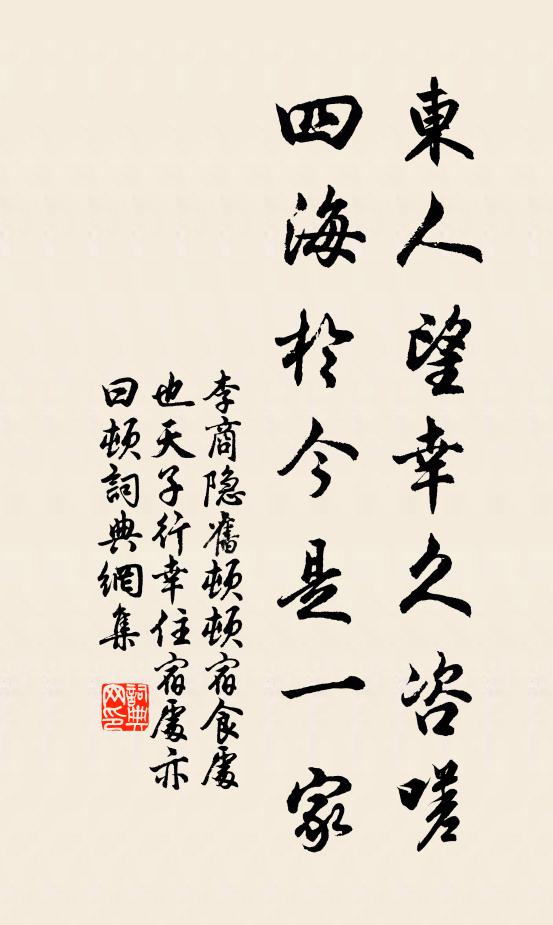 東人望幸久咨嗟
四海於今是一家
李商隐舊頓頓宿食處
也天子行幸住宿處亦
曰頓詞典網集
詞典
网印